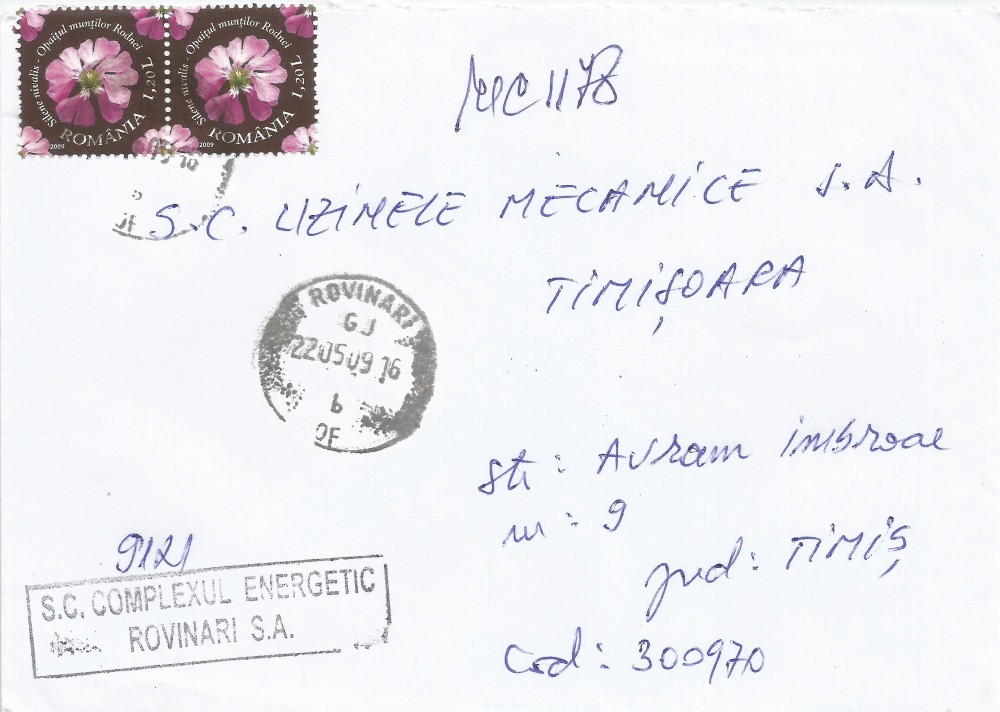 Silene nivalis - Opaițul munților Rodnei
1,20 L
ROMÂNIA
2009
Silene nivalis - Opaițul munților Rodnei
1,20 L
ROMÂNIA
2009
OF
S.C. UZINELE MECANICE S.A.
TIMIȘOARA
ROVINARI
GJ
22 05 09 16
b
OF
str: Avram Imbroae
nr: 9
jud: TIMIȘ
Cod: 300970
9121
S.C. COMPLEXUL ENERGETIC
ROVINARI S.A.